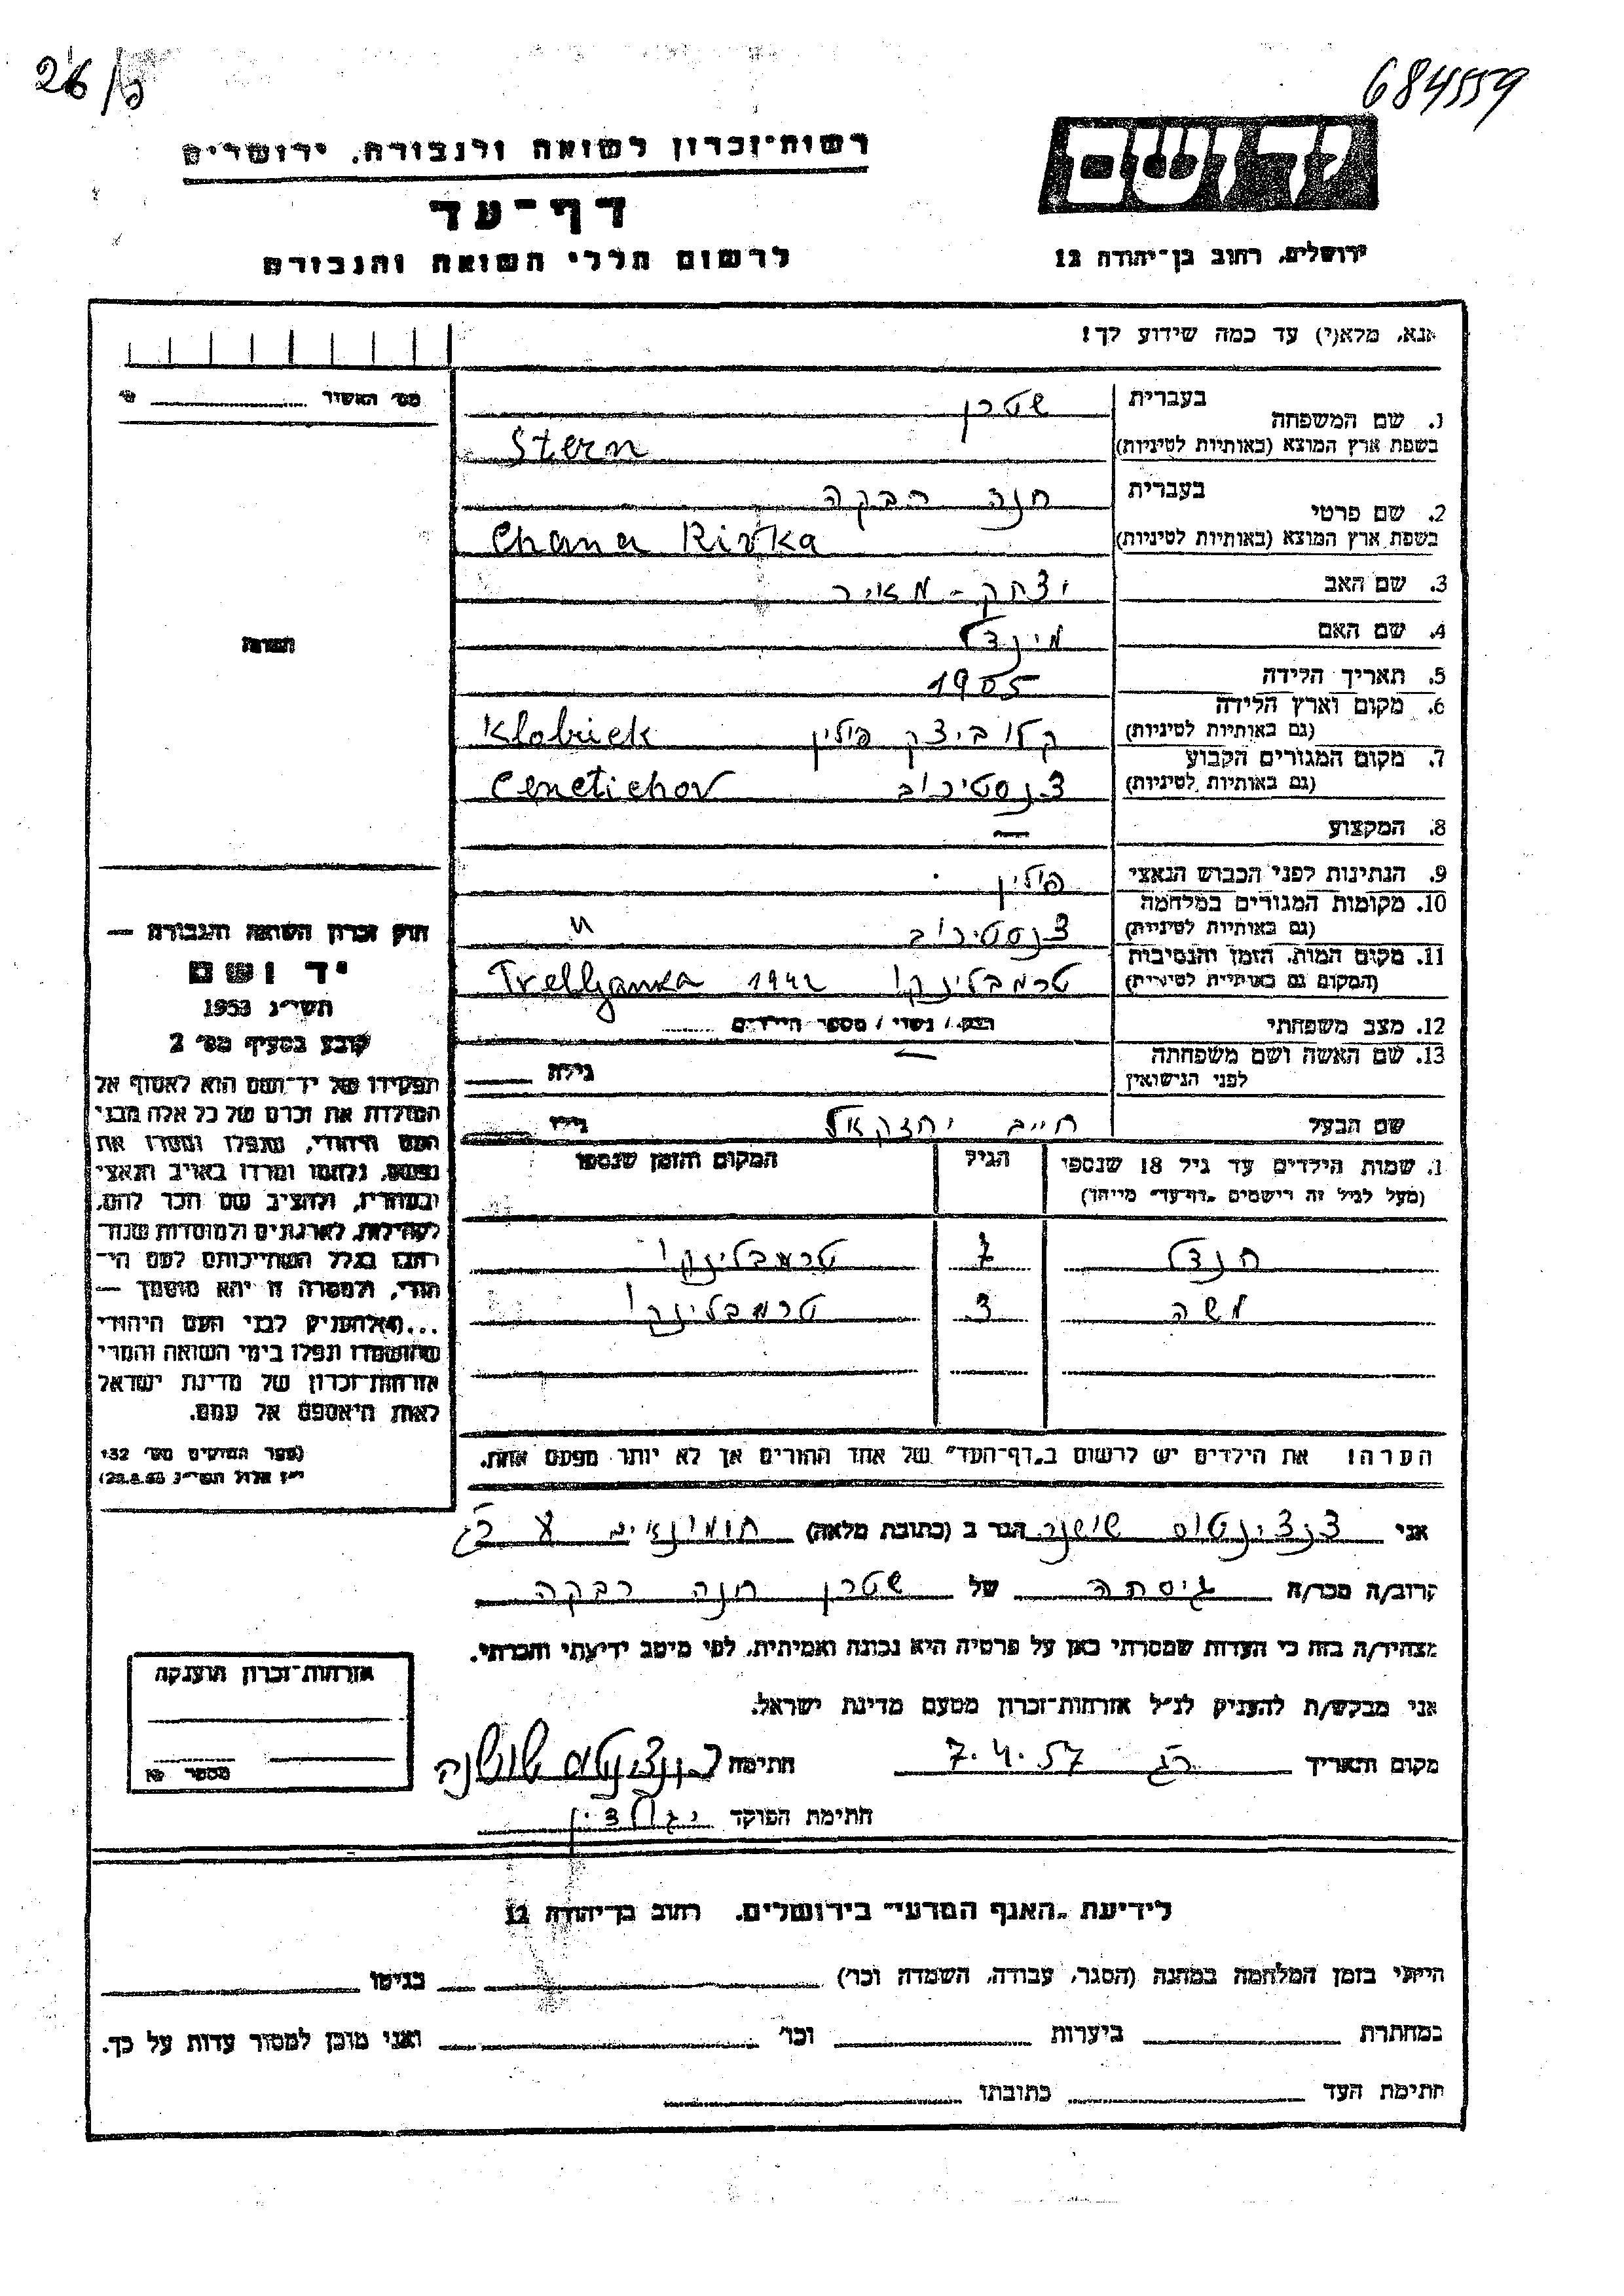 26/5
684559
רשות־זכרון לשואה ולגבורה, ירושלים
יד ושם
דף־עד
לרשום חללי השואה והגבורה
ירושלים, רחוב בן־יהודה 12
אנא, מלא(י) עד כמה שידוע לך!
מס׳ האשור
1. שם המשפחה
בעברית שטרן
בשפת ארץ המוצא (באותיות לטיניות) Stern
2. שם פרטי
בעברית חנה רבקה
בשפת ארץ המוצא (באותיות לטיניות) Chana Rivka
3. שם האב יצחק - מאיר
4. שם האם מינדל
5. תאריך הלידה 1905
6. מקום וארץ הלידה
(גם באותיות לטיניות) קלוביצק פולין Klobiek
7. מקום המגורים הקבוע
(גם באותיות לטיניות) צ׳נסטיכוב Cenetichov
8. המקצוע —
9. הנתינות לפני הכבוש הנאצי פולין
10. מקומות המגורים במלחמה
(גם באותיות לטיניות) צ׳נסטיכוב "
11. מקום המות, הזמן והנסיבות
(המקום גם באותיות לטיניות) טרמבלינקו 1942 Trebljanka
12. מצב משפחתי רווק / נשוי / מספר הילדים
13. שם האשה ושם משפחתה
לפני הנישואין — גילה
שם הבעל חייב יחזקאל גילו
1. שמות הילדים עד גיל 18 שנספו
(מעל לגיל זה רישמים „דף־עד״ מיוחד)
הגיל
המקום והזמן שנספו
הנדל 7 טרמבלינקו
משה 3 טרמבלינקו
הערה! את הילדים יש לרשום ב„דף־העד״ של אחד ההורים אך לא יותר מפעם אחת.
תמונה
חוק זכרון השואה והגבורה —
יד ושם
תשי״ג 1953
קובע בסעיף מס׳ 2
תפקידו של יד־ושם הוא לאסוף אל
המולדת את זכרם של כל אלה מבני
העם היהודי, שנפלו ומסרו את
נפשם, נלחמו ומרדו באויב הנאצי
ובעוזריו, ולהציב שם וזכר להם,
לקהילות, לארגונים ולמוסדות שנח־
רבו בגלל השתייכותם לעם הי־
הודי, ולמטרה זו יהא מוסמך —
...(4) להעניק לבני העם היהודי
שהושמדו ונפלו בימי השואה והמרי
אזרחות־זכרון של מדינת ישראל
לאות היאספם אל עמם.
(ספר החוקים מס׳ 132
י״ז אלול תשי״ג 28.8.53)
אני שושנה הגר ב (כתובת מלאה)
קרוב/ה מכר/ה גיסתה של שטרן חנה רבקה
מצהיר/ה בזה כי העדות שמסרתי כאן על פרטיה היא נכונה ואמיתית, לפי מיטב ידיעתי והכרתי.
אני מבקש/ת להעניק לנ״ל אזרחות־זכרון מטעם מדינת ישראל.
מקום ותאריך רג 7.4.57 חתימה שושנה
חתימת הפוקד
אזרחות־זכרון הוענקה
מספר
לידיעת „האגף המדעי״ בירושלים, רחוב בן־יהודה 12
הייתי בזמן המלחמה במחנה (הסגר, עבודה, השמדה וכו׳) בגיטו
במחתרת ביערות וכו׳ ואני מוכן למסור עדות על כך.
חתימת העד כתובתו